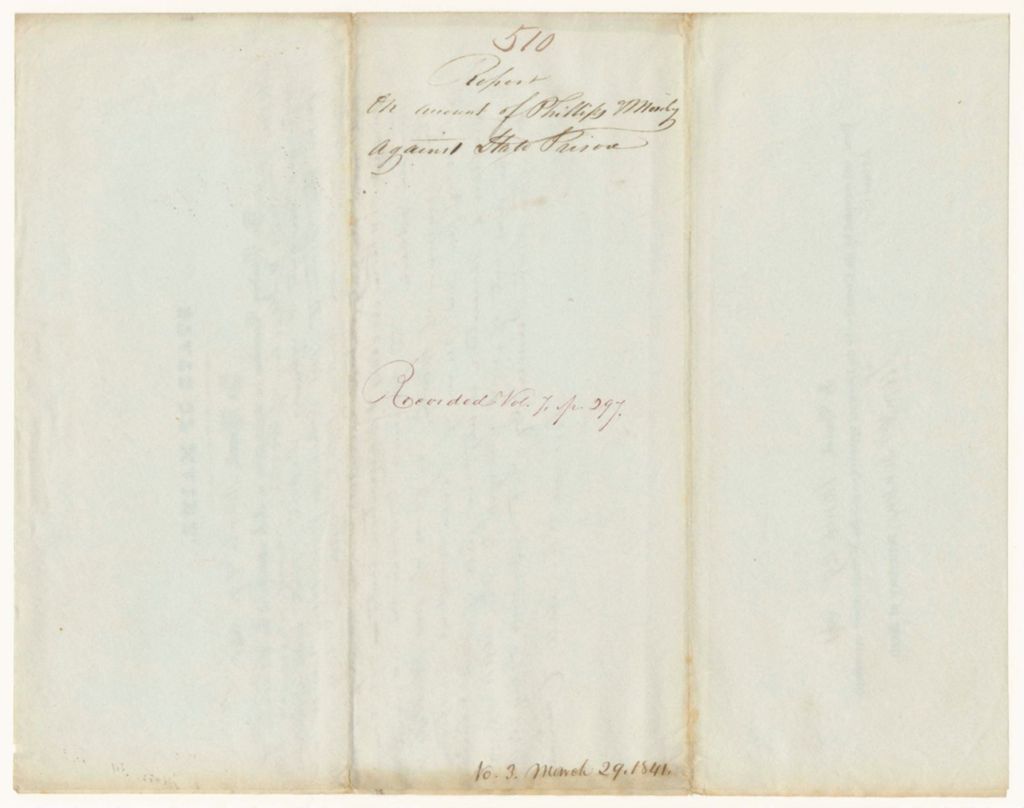 510
Report
On account of Phillips & Mosely
Against State Prison
Recorded Vol. 7. p. 297.
No. 3. March 29. 1841.